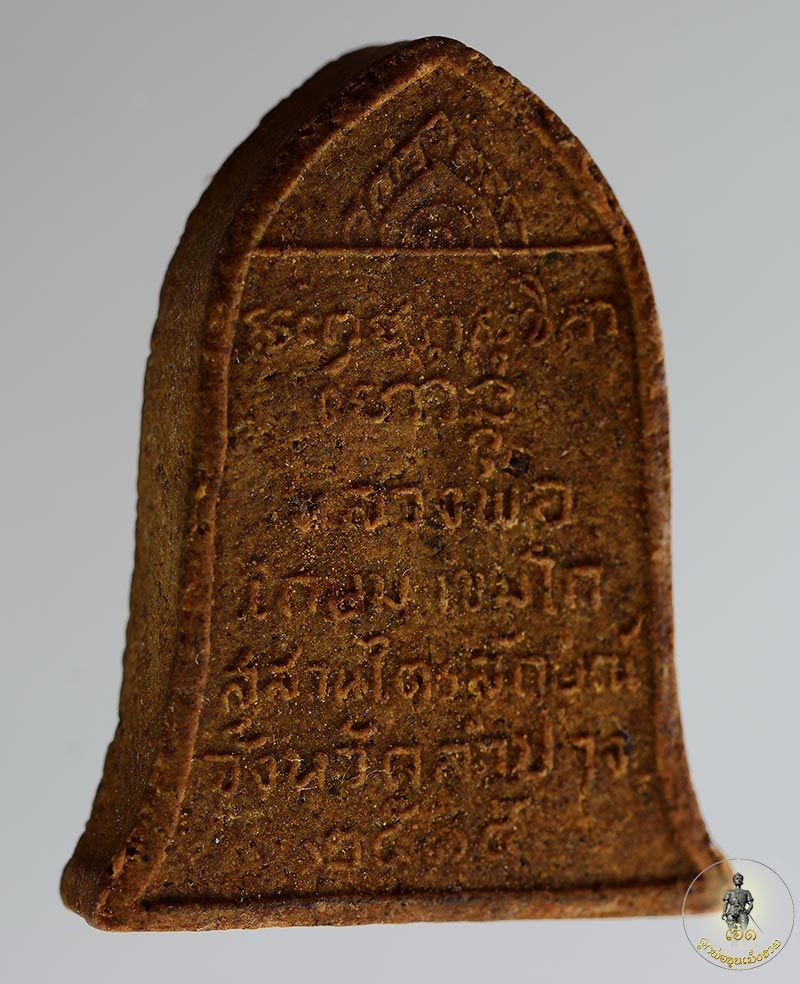 หลวงพ่อ
เกษม เขมโก
สุสานไตรลักษณ์
จังหวัดลำปาง
๒๕๑๕
เอ็ด
ลูกพ่อขุนเม็งราย